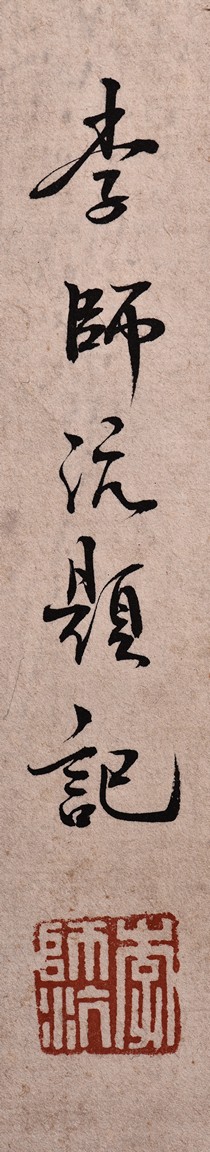 李師沆題記
李師沆